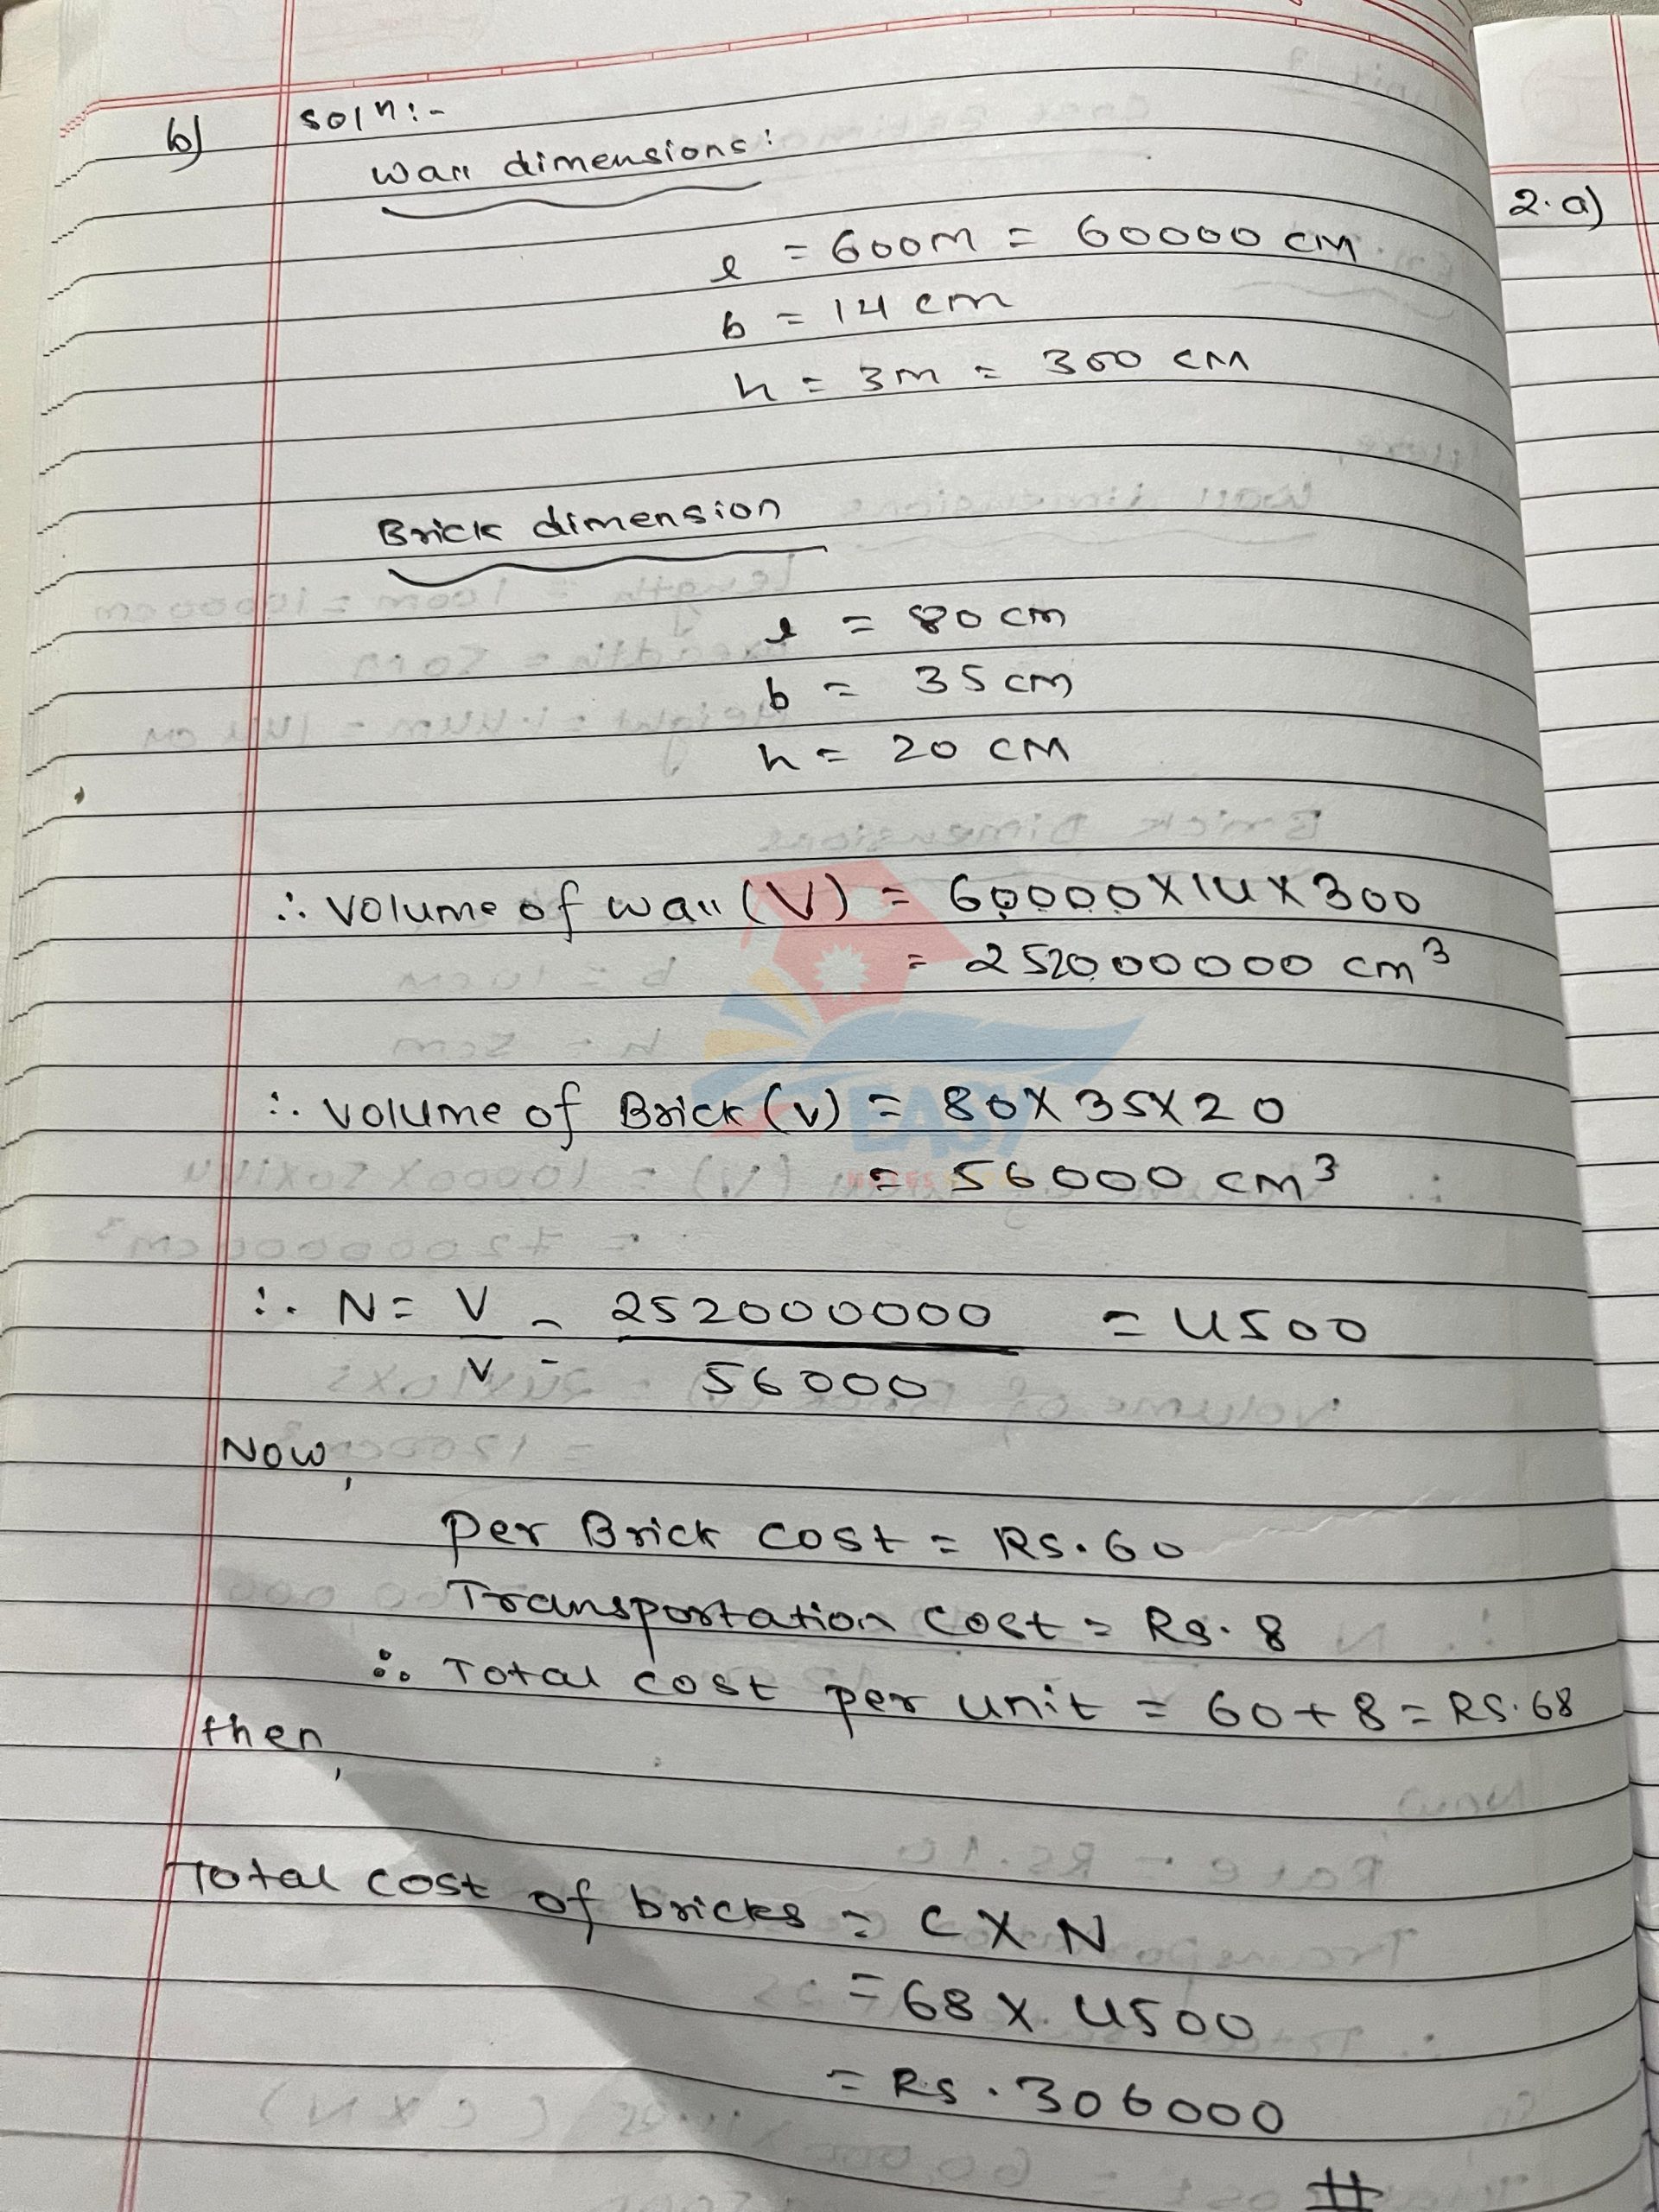 b) Soln:-
Wall dimensions:
l = 600m = 60000 cm
b = 14 cm
h = 3m = 300 cm
Brick dimension
l = 80 cm
b = 35 cm
h = 20 cm
∴ Volume of wall (V) = 60000 X 14 X 300
= 252000000 cm³
∴ Volume of Brick (v) = 80 X 35 X 20
= 56000 cm³
∴ N = V/v = 252000000/56000 = 4500
Now,
Per Brick cost = Rs. 60
Transportation cost = Rs. 8
∴ Total cost per unit = 60 + 8 = Rs. 68
then,
Total cost of bricks = C X N
= 68 X 4500
= Rs. 306000
#
2.a)
EASY